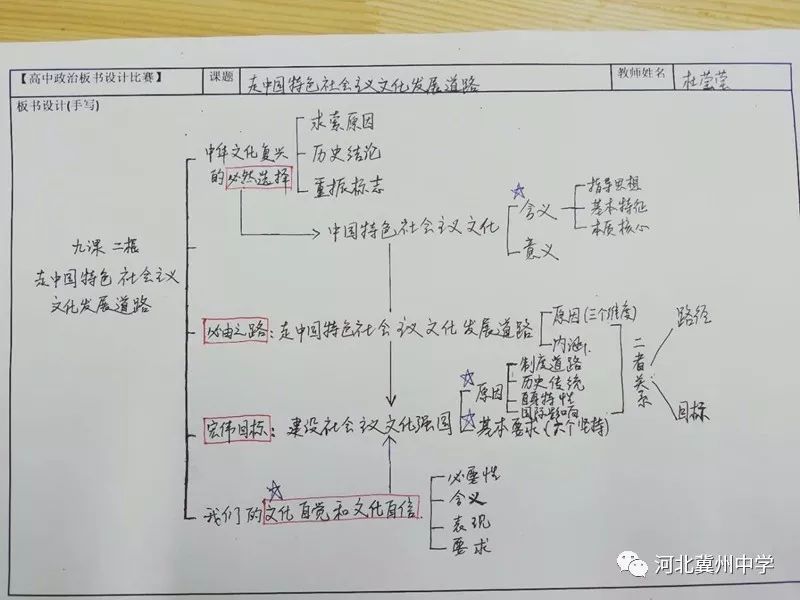 【高中政治板书设计比赛】 课题 走中国特色社会主义文化发展道路 教师姓名 杜莹莹
板书设计(手写)
九课 二框
走中国特色社会主义
文化发展道路
中华文化复兴
的必然选择
求索原因
历史结论
重振标志
中国特色社会主义文化
含义
指导思想
基本特征
本质核心
意义
必由之路：走中国特色社会主义文化发展道路
原因(三个维度)
内涵
宏伟目标：建设社会主义文化强国
原因
制度道路
历史传统
国际影响
基本要求(六个坚持)
二者关系
路径
目标
我们的文化自觉和文化自信
必要性
含义
表现
要求
河北冀州中学